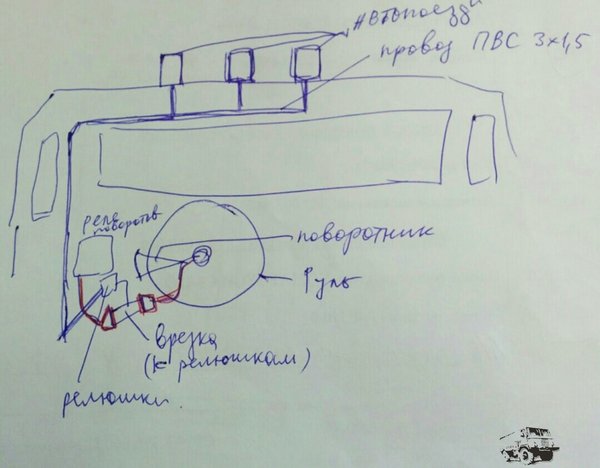 Автопоезд
провод ПВС 3×1,5
реле
поворотов
поворотник
Руль
Врезка
(к релюшкам)
релюшки